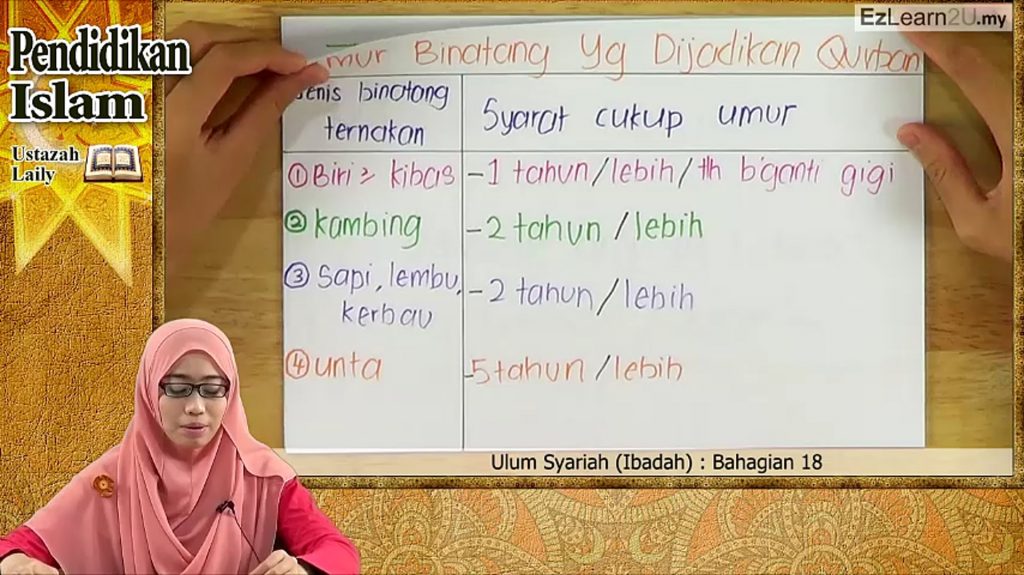 EzLearn2U.my
Pendidikan
Islam
Ustazah
Laily
Umur Binatang Yg Dijadikan Qurban
Jenis binatang
ternakan
Syarat cukup umur
① Biri² kibas
- 1 tahun/lebih/tlh b'ganti gigi
② Kambing
- 2 tahun / lebih
③ Sapi, lembu,
kerbau
- 2 tahun / lebih
④ unta
- 5 tahun / lebih
Ulum Syariah (Ibadah) : Bahagian 18